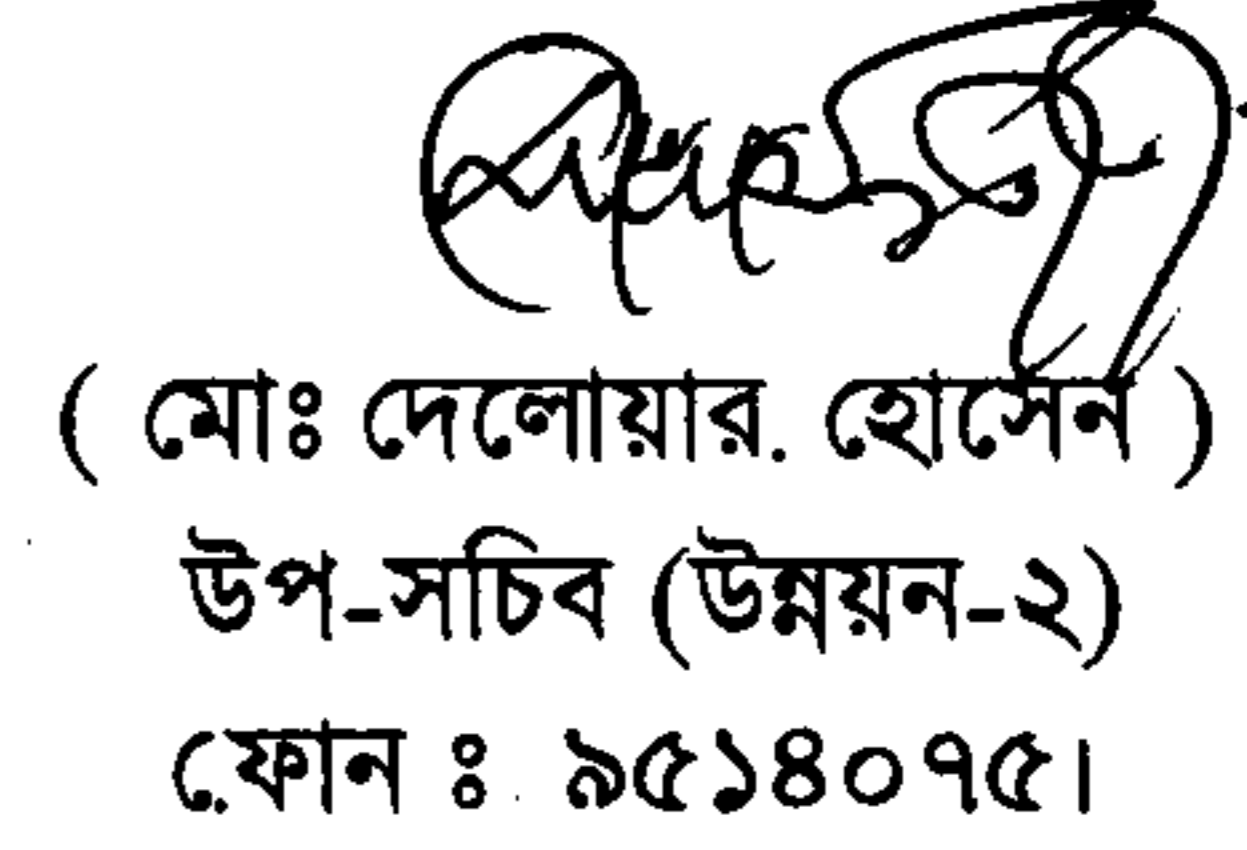 ( মোঃ দেলোয়ার. হোসেন )
উপ-সচিব (উন্নয়ন-২)
ফোন ঃ ৯৫১৪০৭৫।